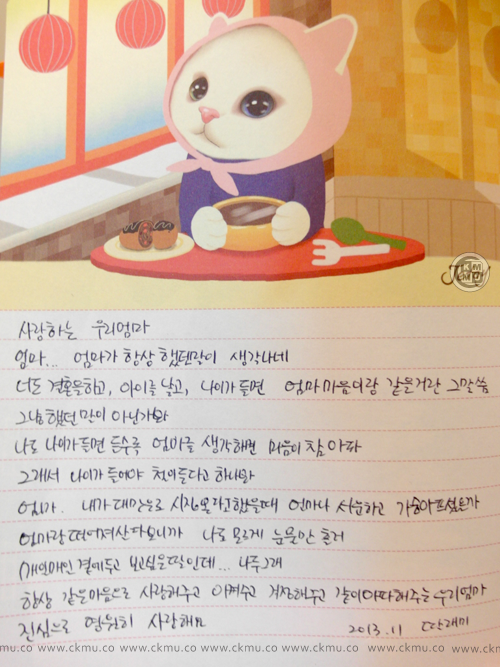 사랑하는 우리엄마
엄마... 엄마가 항상 했던말이 생각나네
너도 결혼을하고, 아이를 낳고, 나이가 들면 엄마 마음이랑 같을거란 그말씀
그냥 했던 말이 아닌가봐
나도 나이가 들면 들수록 엄마를 생각하면 마음이 참 아파
그래서 나이가 들어야 철이든다고 하나봐
엄마. 내가 대만으로 시집온다고 했을때 얼마나 서운하고 가슴아프셨을까
엄마랑 떨어져산다보니까 나도 모르게 눈물만 흘러
매일매일 곁에두고 보고싶은딸인데... 나두그래
항상 같은마음으로 사랑해주고 아껴주고 걱정해주고 같이아파해주는우리엄마
진심으로 영원히 사랑해요 2013.11 딴래미
www.ckmu.co www.ckmu.co www.ckmu.co www.ckmu.co